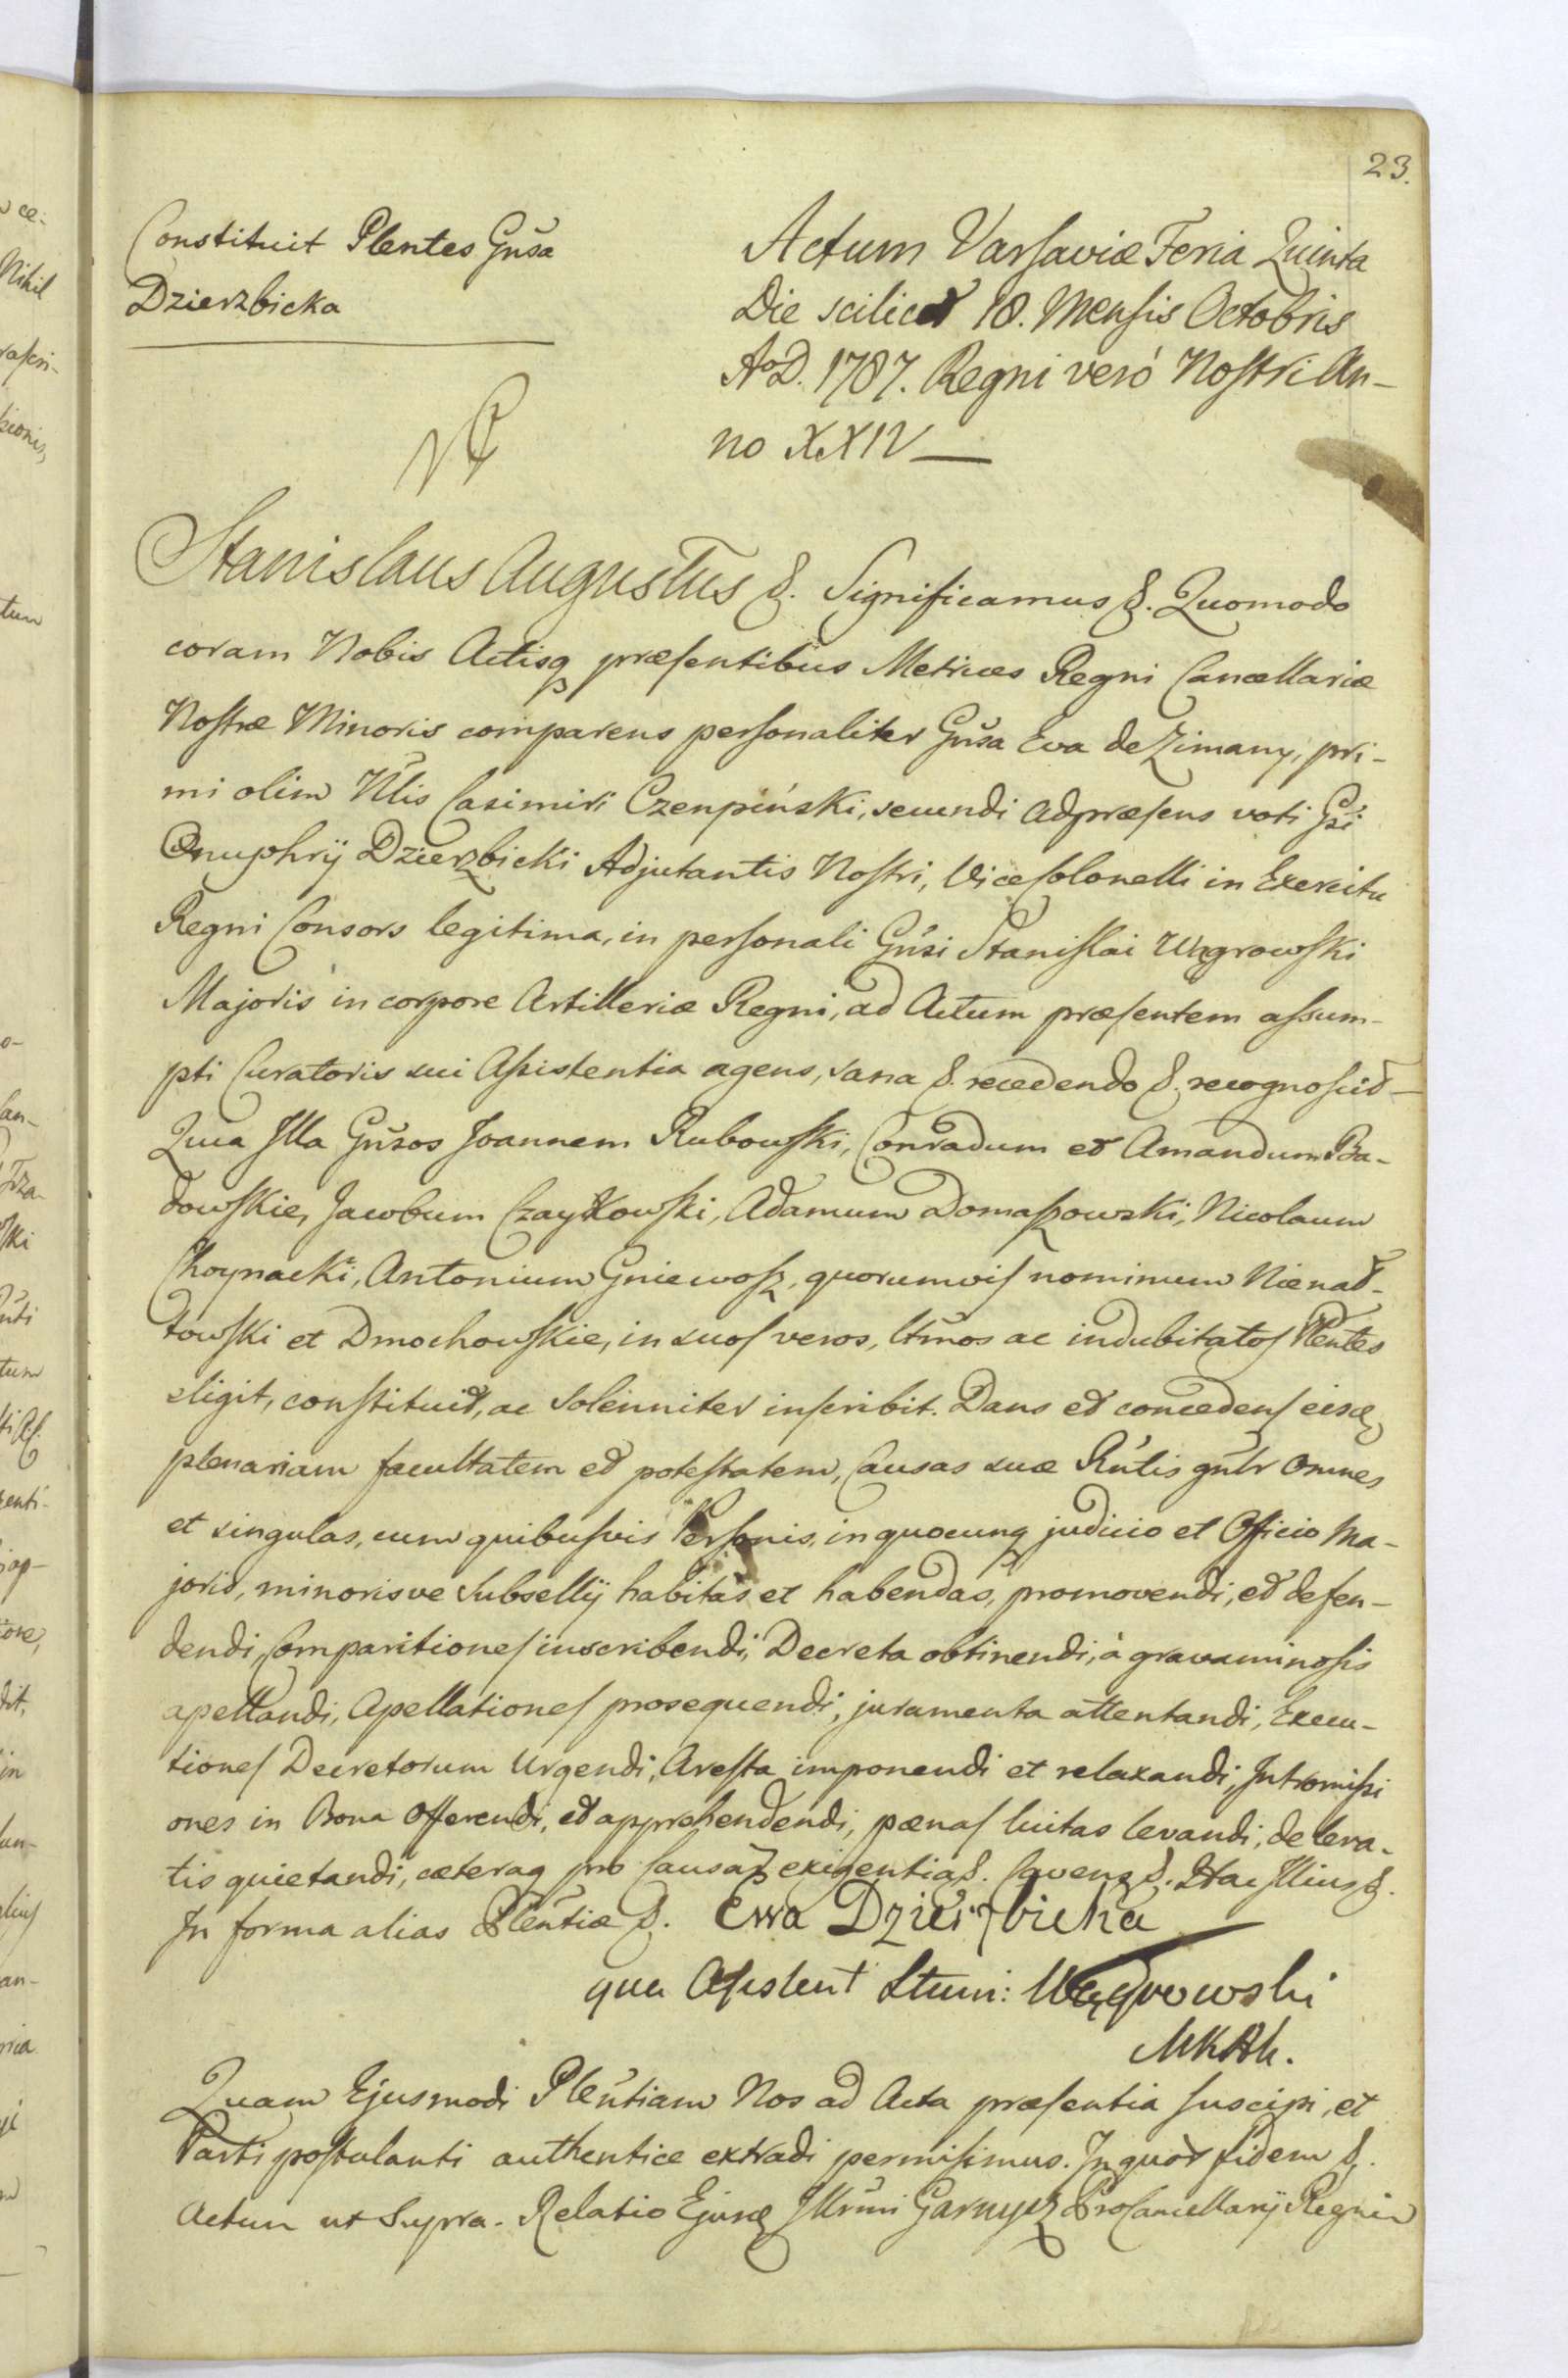 23.
Constituit Plentes Gnsa
Dzierzbicka
Actum Varsaviæ Feria Quinta
Die scilicet 18. Mensis Octobris
AoD. 1787. Regni veró Nostri An-
no XXIV
Stanislaus Augustus &. Significamus &. Quomodo
coram Nobis Actisq præsentibus Metrices Regni Cancellariæ
Nostræ Minoris comparens personaliter Gnsa Eva de Zimany, pri-
mi olim Nlis Casimiri Czenpiński, secundi adpræsens voti Gsi
Onuphrij Dzierzbicki Adjutantis Nostri, Vice Colonelli in Exercitu
Regni Consors legitima, in personali Gnsi Stanislai Węgrowski
Majoris in corpore Artilleriæ Regni, ad Actum præsentem assum-
pti Curatoris sui Assistentia agens, sana &. recedendo &. recognoscit
Quia Illa Gnsos Joannem Rubowski, Conradum et Amandum Ba-
dowskie, Jacobum Czaykowski, Adamum Domaszowski, Nicolaum
Choynacki, Antonium Gniewosz, quorumvis nominum Nienał-
towski et Dmochowskie, in suos veros, ltmos ac indubitatos Plentes
eligit, constituit, ac Solenniter inscribit. Dans et concedens eisd
plenariam facultatem et potestatem, Causas suæ Rntis gnlr omnes
et singulas, cum quibusvis Personis, in quocunq judicio et Officio Ma-
joris, minorisve Subsellij habitas et habendas, promovendi, et defen-
dendi, Comparitiones inscribendi, Decreta obtinendi, à gravaminosis
apellandi, Apellationes prosequendi, juramenta attentandi, Execu-
tiones Decretorum Urgendi, Aresta imponendi et relaxandi, Intromissi
ones in Bona Offerendi, et apprehendendi, pænas luitas levandi, de leva-
tis quietandi, cæteraq pro Causar exigentia &. Cavens &. Hac Illius &.
In forma alias Plentiæ &. Ewa Dzierzbicka
qua Asistent Stani: Węgrowski
MKAk.
Quam Ejusmodi Plentiam Nos ad Acta præsentia suscipi, et
Parti postulanti authentice extradi permisimus. In quor fidem &.
Actum ut Supra. Relatio Ejusd Illrmi Garnysz ProCancellarij Regni